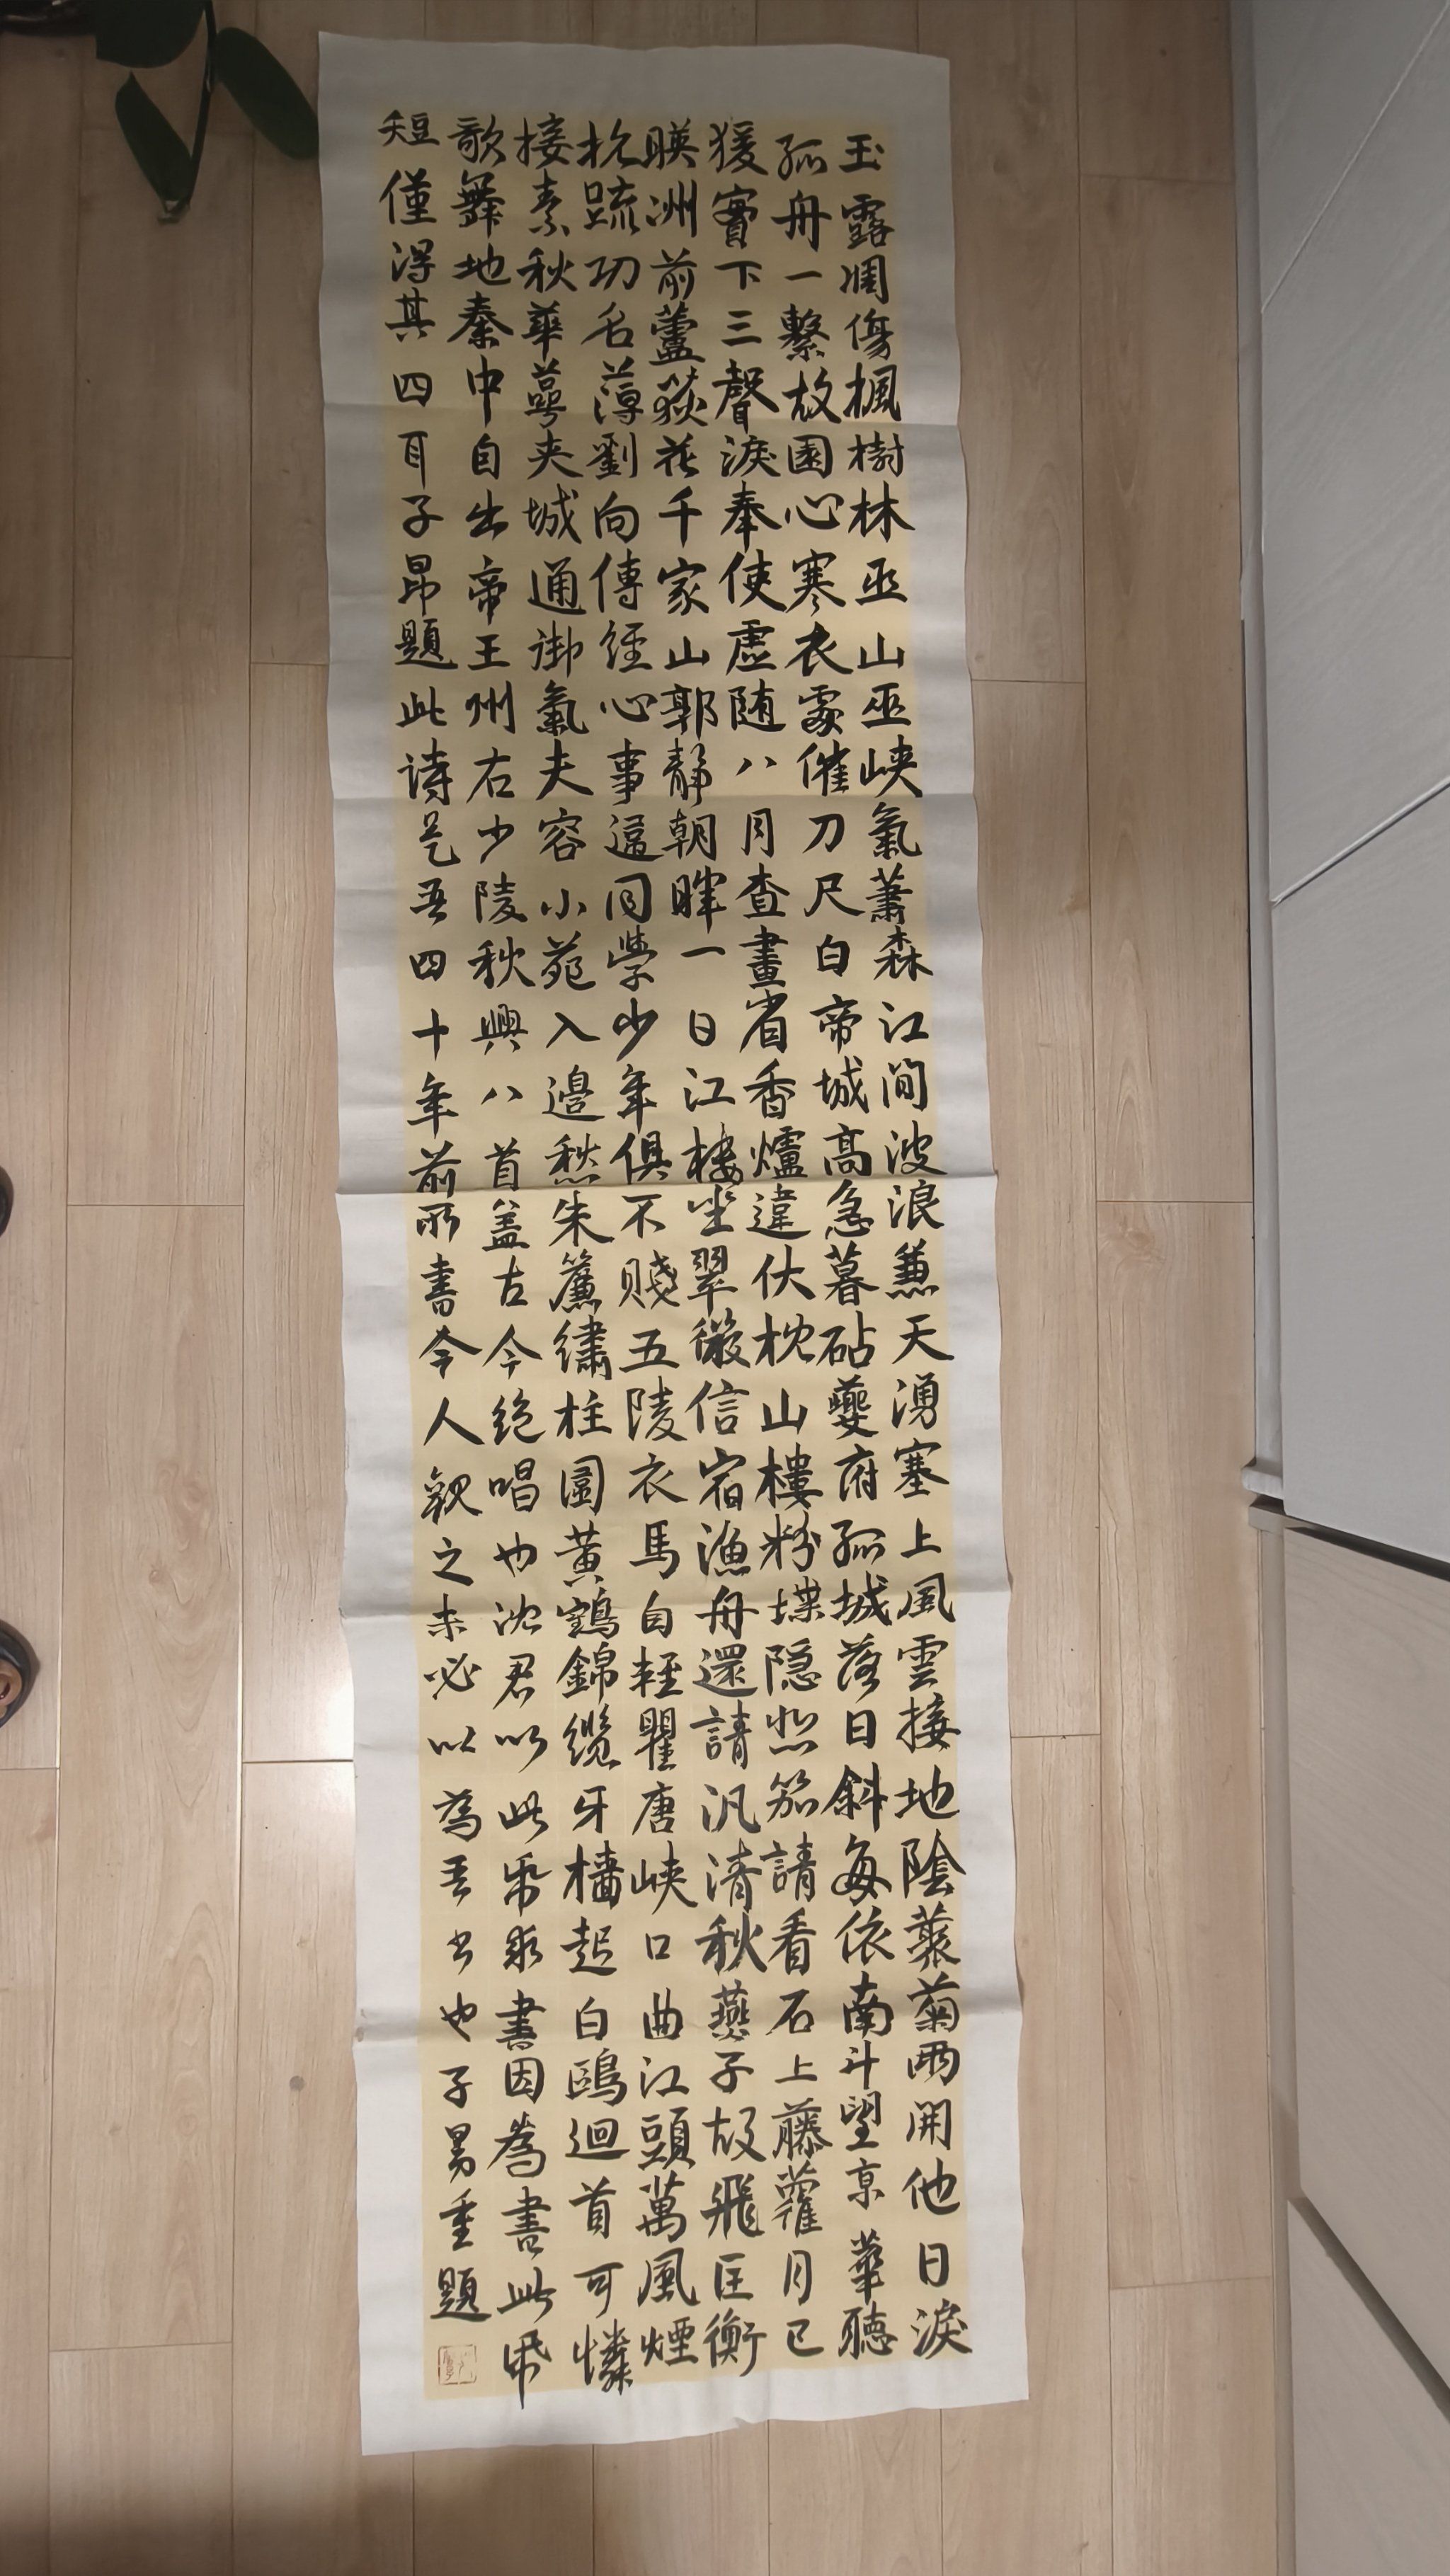 玉露凋傷楓樹林巫山巫峽氣蕭森江間波浪兼天湧塞上風雲接地陰叢菊兩開他日淚
孤舟一繫故園心寒衣處催刀尺白帝城高急暮砧夔府孤城落日斜每依南斗望京華聽
猨實下三聲淚奉使虛随八月查畫省香爐違伏枕山樓粉堞隐悲笳請看石上藤蘿月已
暎洲前蘆荻花千家山郭靜朝暉一日江樓坐翠微信宿漁舟還請汎清秋燕子故飛匡衡
抗疏功名薄劉向傳經心事違同學少年俱不賤五陵衣馬自輕瞿唐峽口曲江頭萬風煙
接素秋華萼夾城通御氣夫容小苑入邊愁朱簾繡柱圍黃鶴錦纜牙檣起白鷗迴首可憐
歌舞地秦中自出帝王州右少陵秋興八首蓋古今絕唱也沈君以此帋求書因為書此帋
短僅得其四耳子昂題此詩是吾四十年前所書今人觀之未必以為吾書也子昂重題